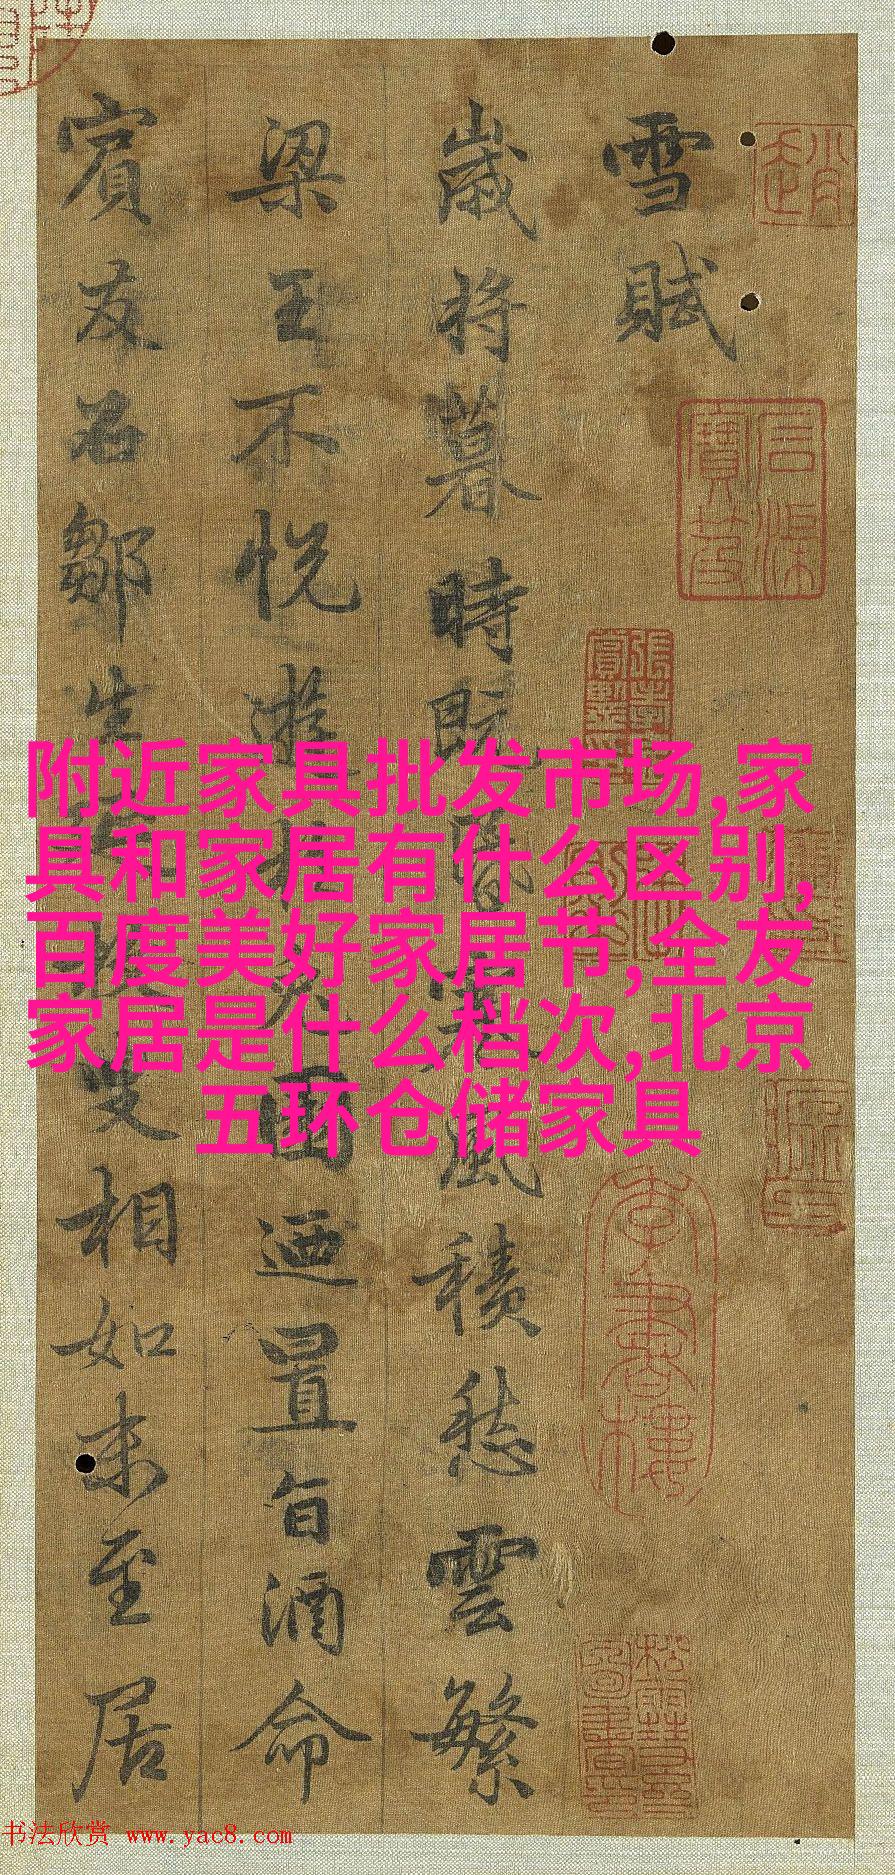 雪賦
歲将暮時既昏寒風積愁雲繁
梁王不悅遊於兔園迺置旨酒命
賓友召鄒生延枚叟相如未至居
附近家具批发市场,家
具和家居有什么区别,
百度美好家居节,全友
家居是什么档次,北京
五环仓储家具
书法欣赏 www.yac8.com